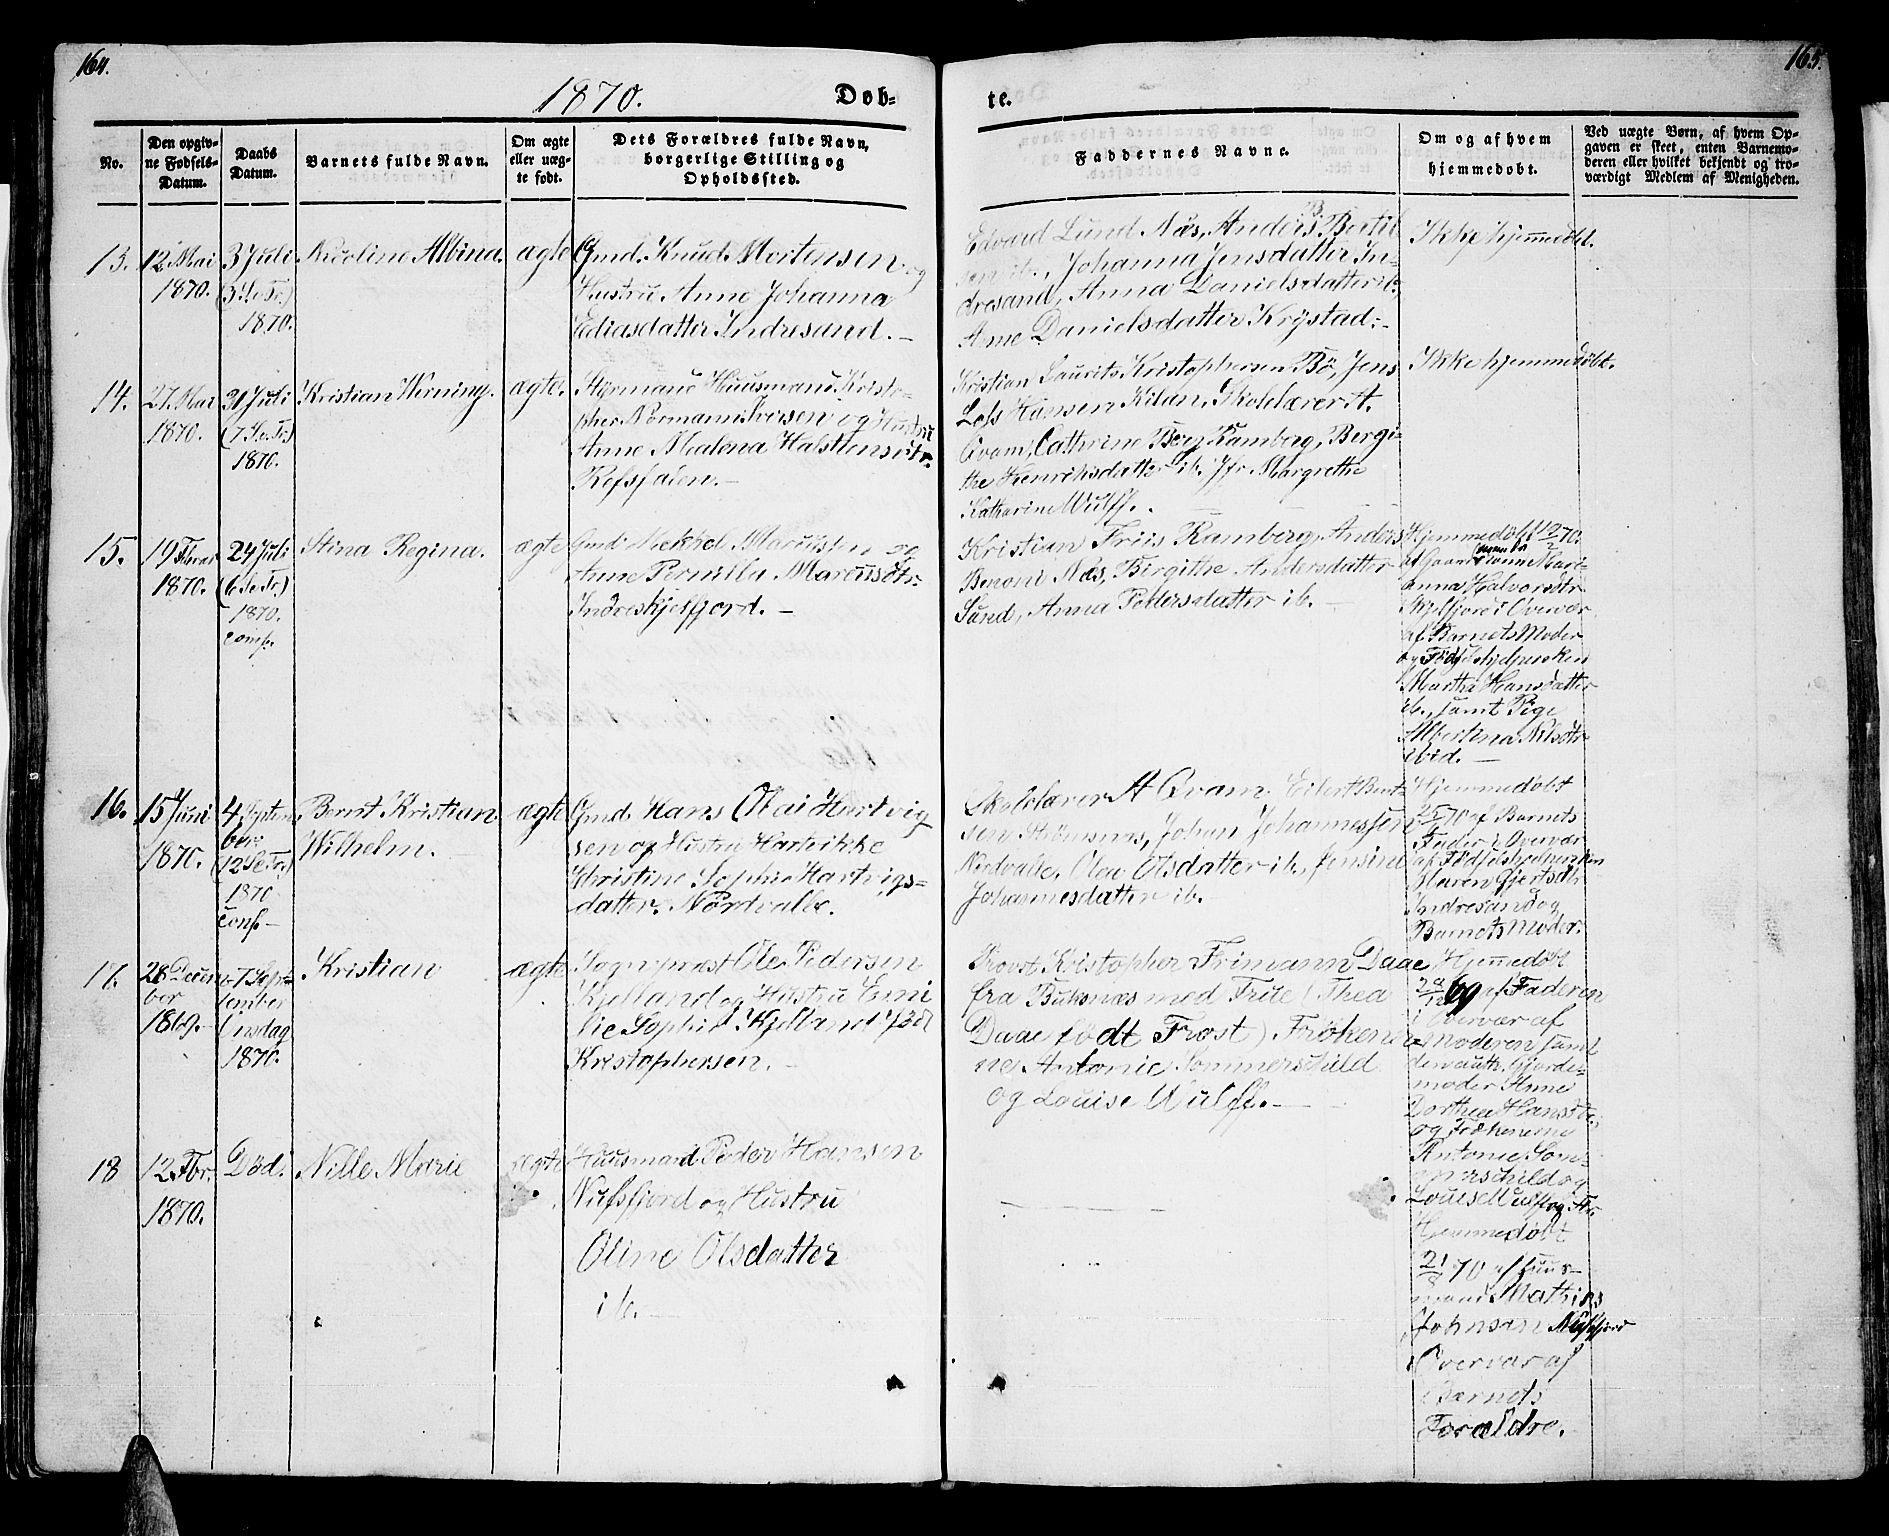 164.
165.
1870.
Døb-
te.
No.
Den opgiv-
ne Fødsels-
Datum.
Daabs
Datum.
Barnets fulde Navn.
Om ægte
eller uæg-
te født.
Dets Forældres fulde Navn,
borgerlige Stilling og
Opholdssted.
Faddernes Navne.
Om og af hvem
hjemmedøbt.
Ved uægte Børn, af hvem Op-
gaven er skeet, enten Barnemo-
deren eller hvilket bekjendt og tro-
værdigt Medlem af Menigheden.
13.
12 Mai
1870.
3 Juli
(3 S. e. Tr.)
1870.
Nicoline Albina.
ægte
Gmd. Knud Mortensen og
Hustru Anne Johanna
Ediasdatter Indresand. -
Edvard Lund Næs, Anders Bertil
sen ib., Johanna Jensdatter In-
dresand, Anna Danielsdatter ib.
Anne Danielsdatter Krystad. -
Ikke hjemmedøbt.
14.
27 Mai
1870.
31 Juli
(7 S. e. Tr.)
1870.
Kristian Werning.
ægte.
Styrmand Huusmand Kristo-
pher Normann Iversen og Hustru
Anne Malena Halstensdtr.
Refsfalen. -
Kristian Laurits Kristophersen Bö, Jens
Loss Hansen Kilan, Skolelærer A.
Qvam, Cathrine Berg Ramberg, Bergi-
the Henriksdatter ib. Jfr Margrethe
Katharine Wulff.
Ikke hjemmedøbt.
15.
19 Febr
1870.
24 Juli
(6 S. e. Tr.)
1870.
conf.
Stina Regina.
ægte
Gmd. Mekkel Marcussen og
Anne Pernilla Marcusdtr.
Indreskjelfjord. -
Kristian Friis Ramberg, Anders
Benoni Næs, Birgithe Andersdatter
Sund, Anna Pedersdatter ib. -
Hjemmedøbt 70.
af Mari-
anna Halvorsdtr
Skjelfjord i Overvær
af Barnets Moder
og Fødselshjelpersken
Martha Hansdatter
ib., samt Pige
Albertina Nilsdtr
ibid. -
16.
15 Juni
1870.
4 Septem
ber
(12 S. e. Tr.)
1870
conf. -
Bernt Kristian
Wilhelm.
ægte
Gmd. Hans Olai Hartvig
sen og Hustru Hartvikke
Christine Sophie Hartvigs-
datter. Nordvale.
Skolelærer A Qvam. Eilert Bent-
sen Strömsnæs, Johan Johannessen
Nordvale, Olea Olsdatter ib., Jensine
Johannesdatter ib. -
Hjemmedøbt
70 af Barnets
Fader i Overvær
af Fødselshjelpersken
Maren Gjertsdtr
Indresand og
Barnets Moder.
17.
28 Decem
ber
1869.
7 Septem
tember
(Onsdag
1870.
Kristian
ægte
Sognepræst Ole Pedersen
Kjelland og Hustru Emi
lie Sophie Kjelland född
Kristophersen. -
Provst Kristopher Frimann Daae
fra Buksnæs med Frue (Thea
Daae född Frost) Frökenerne
ne Antonie Sommerschild
og Louise Wulff. -
Hjemmedøbt
29/12 69 af Faderen
i Overvær af
Moderen samt
den auth. Gjorde-
moder Anne
Dorthea Hansdtr.
og Frökenerne
Antonie Som-
merschild og
Louise Wulff og Fr.
18
12 Fbr.
1870.
Död.
Nille Marie
ægte
Huusmand Peder Hansen
Nusfjord og Hustru
Oline Olsdatter
ib. -
Hjemmedøbt
70 af Huus-
mand Mathias
Johnsen Nusfjord
i Overvær af
Barnets
Forældre.